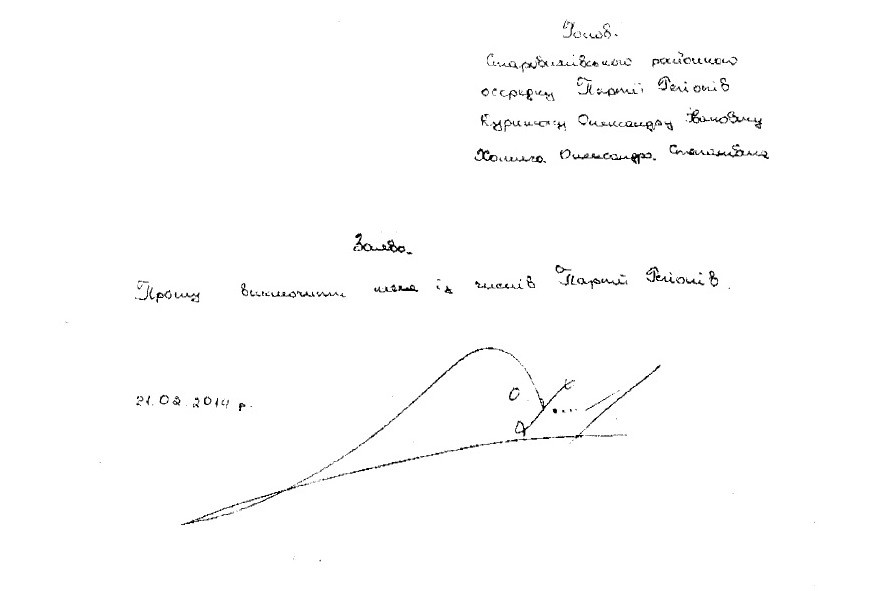 Голов.
Старовижівського районного
осередку Партії Регіонів
Олександру Івановичу
Олександра Степановича
Заява.
Прошу виключити мене із членів Партії Регіонів.
21.02.2014 р.